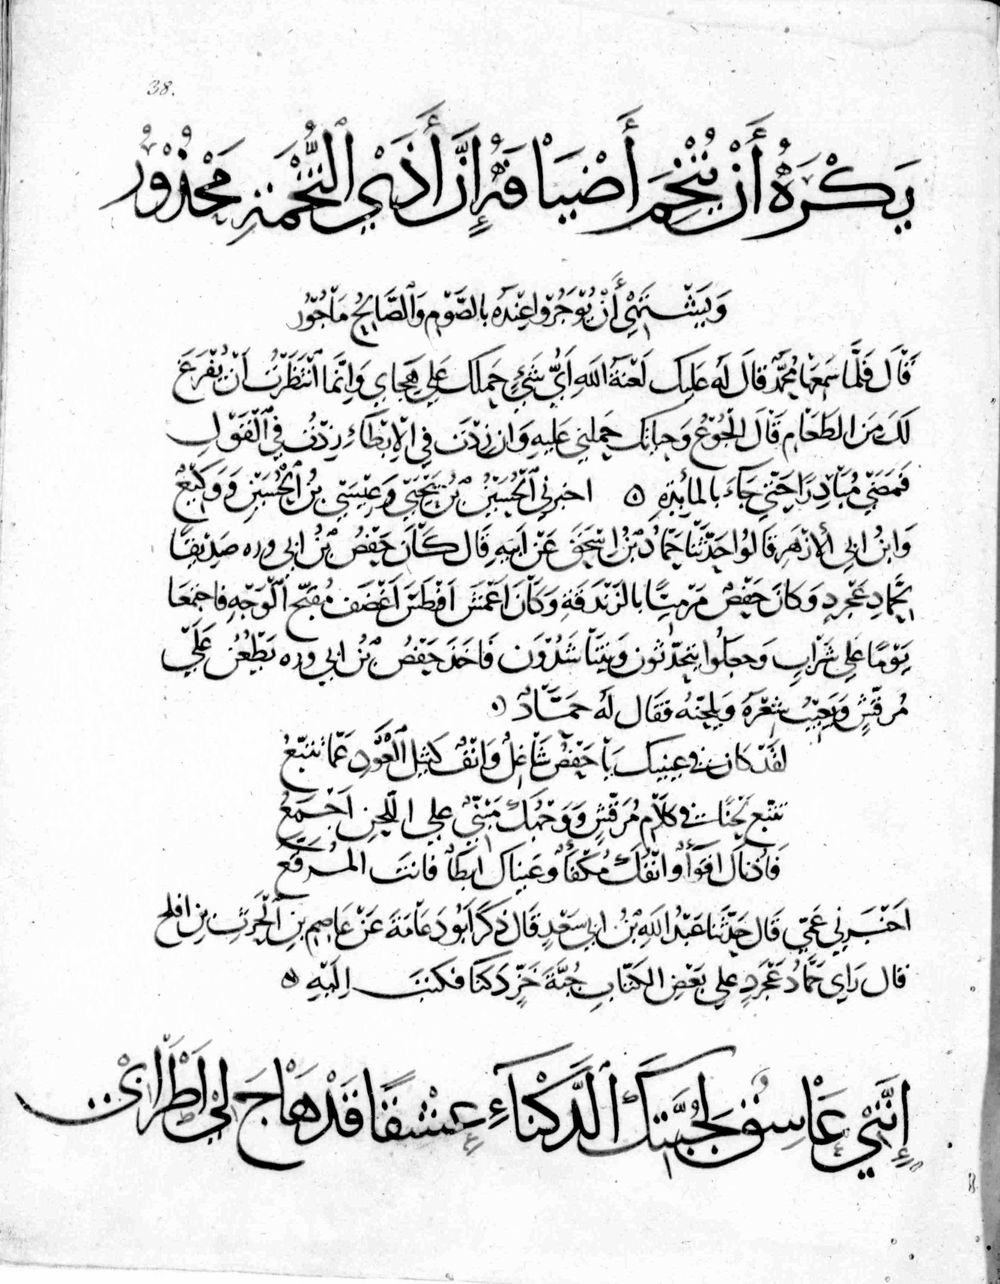 38.
يَكْرَهُ أَنْ يُتْخِمَ أَضْيَافَهُ إِنَّ أَذَى التُّخْمَةِ مَحْذُوْرُ
وَيَشْتَهِيْ أَنْ يُوْجَرُوا عِنْدَهُ بِالصَّوْمِ وَالصَّايِمُ مَأْجُوْرُ
قَالَ فَلَمَّا سَمِعَهَا مُحَمَّد قَالَ لَهُ عَلَيكَ لَعْنَةُ اللهِ أَيُّ شَيْءٍ حَمَلَكَ عَلَى هِجَايِ وَإِنَّمَا انْتَظَرْتُ أَنْ يُفْرَغَ
لَكَ مِنَ الطَّعَامِ قَالَ الْجُوْعُ وَحَيَاتِكَ حَمَلَنِي عَلَيهِ وَإِنْ زِدْتَ فِي الإِبْطَاءِ زِدْتُ فِي الْقَوْلِ
فَمَضَى مُبَادِرًا حَتَّى جَاءَ بِالمَايِدَةِ ٥ اخبرني الْحُسَيْنُ بْنُ يَحْيَى وَعِيْسَى بْنُ الْحُسَيْنِ وَوَكِيْعُ
وَابْنُ ابِي الأَزْهَرِ قَالُوا حَدَّثَنَا حَمَّادُ بْنُ اسْحَقَ عَنْ ابِيهِ قَالَ كَانَ حَفْصُ بْنُ ابي وره صَدِيْقًا
لحَمَّادِ عَجْرَدٍ وَكَانَ حَفْصٌ مَرْمِيًّا بِالزَّنْدَقَةِ وَكَانَ اعْمَشَ افْطَسَ اغْضَفَ مُقَبَّحَ الْوَجْهِ فَاجْتَمَعَا
يَوْمًا عَلَى شَرَابٍ وَجَعَلُوا يَتَحَدَّثُونَ وَيَتَنَاشَدُوْنَ فَاخَذَ حَفْصُ بْنُ ابي وره يَطْعُنُ عَلَى
مُرَقِّشٍ وَيَعِيْبُ شِعْرَهُ وَيُلَحِّنُهُ فَقَالَ لَهُ حَمَّادٌ ٥
لَقَدْ كَانَ في عَيْنَيكَ يَا حَفْصُ شَاغِلٌ وَانْفٌ كَثِيْلِ الْعَوْدِ عَمَّا تَتَبَّعُ
تَتَبَّعُ لَحْنًا في كَلَامِ مُرَقِّشٍ وَوَجْهُكَ مَبْنِيٌّ عَلَى اللَّحْنِ اجْمَعُ
فَأُذْنَاكَ اقْوَاءٌ وَانْفُكَ مُكْفَأٌ وَعَيْنَاكَ ايطَاءٌ فَانتَ المُرَقَّعُ
اخْبَرَنِي عَمِّي قَالَ حَدَّثَنَا عَبْدُ اللهِ بْنُ ابي سَعْدٍ قَالَ ذَكَرَ ابُو دَعَامَةَ عَنْ عَاصِمِ بْنِ الْحَرِثِ بْنِ افلح
قال رَاى حَمَّادُ عَجْرَدٍ عَلَى بَعْضِ الكُتَّابِ جُبَّةَ خَزٍّ دَكْنَا فكتبَ اِلَيْهِ ٥
إِنَّنِيْ عَاشِقٌ لِجُبَّتِكَ الدَّكْنَاءِ عِشْقًا قَدْ هَاجَ لِيْ اطْرَابِيْ